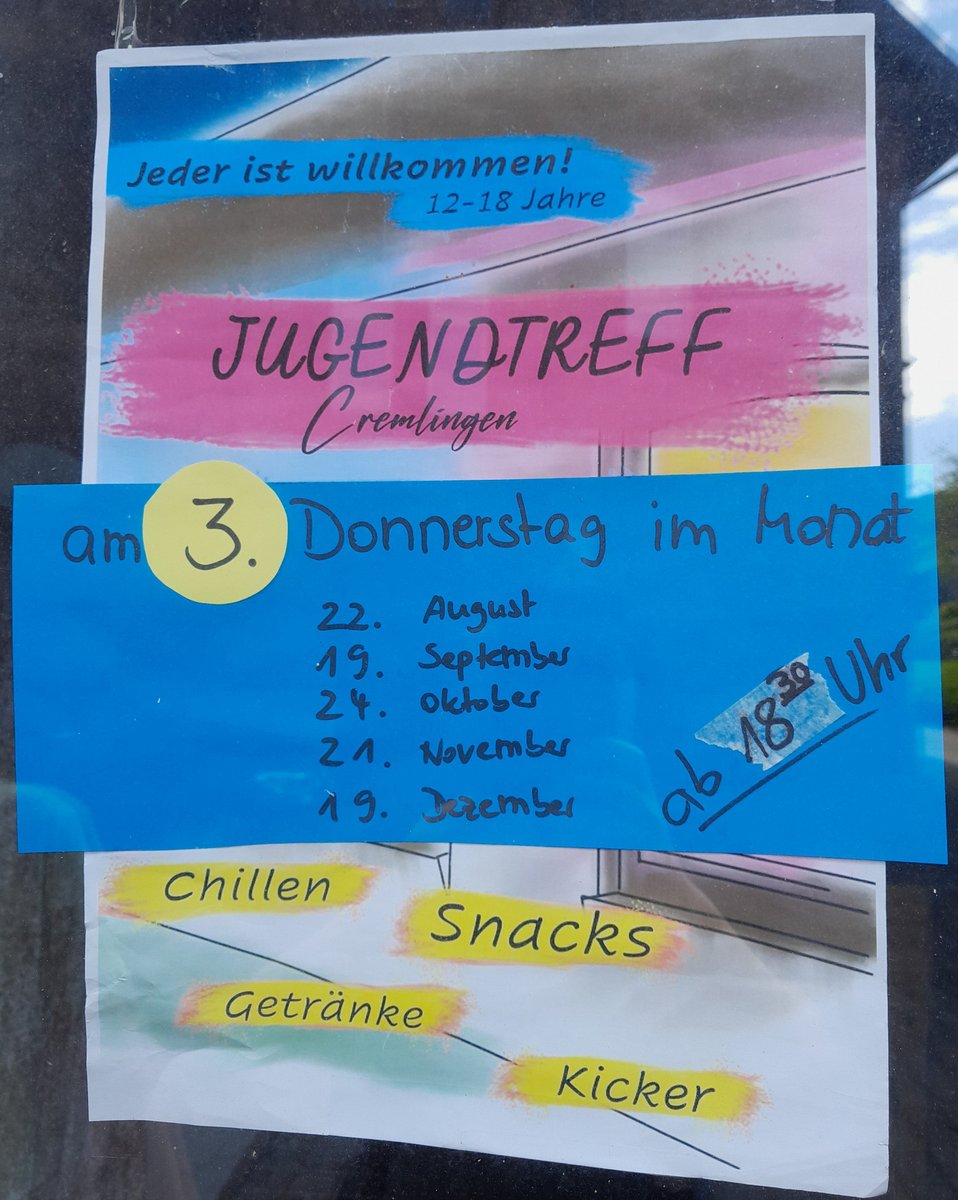 Jeder ist willkommen!
12-18 Jahre
JUGENDTREFF
Cremlingen
am 3. Donnerstag im Monat
22. August
19. September
24. Oktober
21. November
19. Dezember
ab 18³⁰ Uhr
Chillen
Snacks
Getränke
Kicker